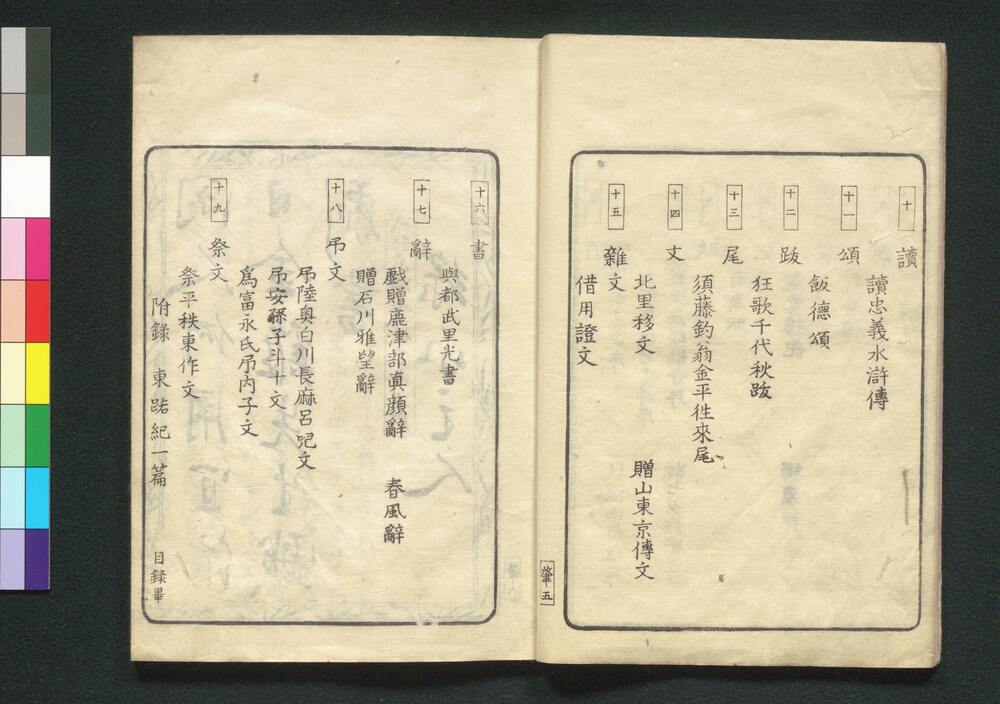 十 讀
讀忠義水滸傳
十一 頌
飯德頌
十二 跋
狂歌千代秋跋
十三 尾
須藤釣翁金平徃來尾
十四 文
北里移文 贈山東京傳文
十五 雜文
借用證文
肇五
十六 書
與都武里光書
十七 辭
戲贈鹿津部真顔辭 春風辭
贈石川雅望辭
十八 吊文
吊陸奥白川長麻呂兒文
吊安孫子斗十文
爲富永氏吊内子文
十九 祭文
祭平秩東作文
附録 東路紀一篇 目録畢